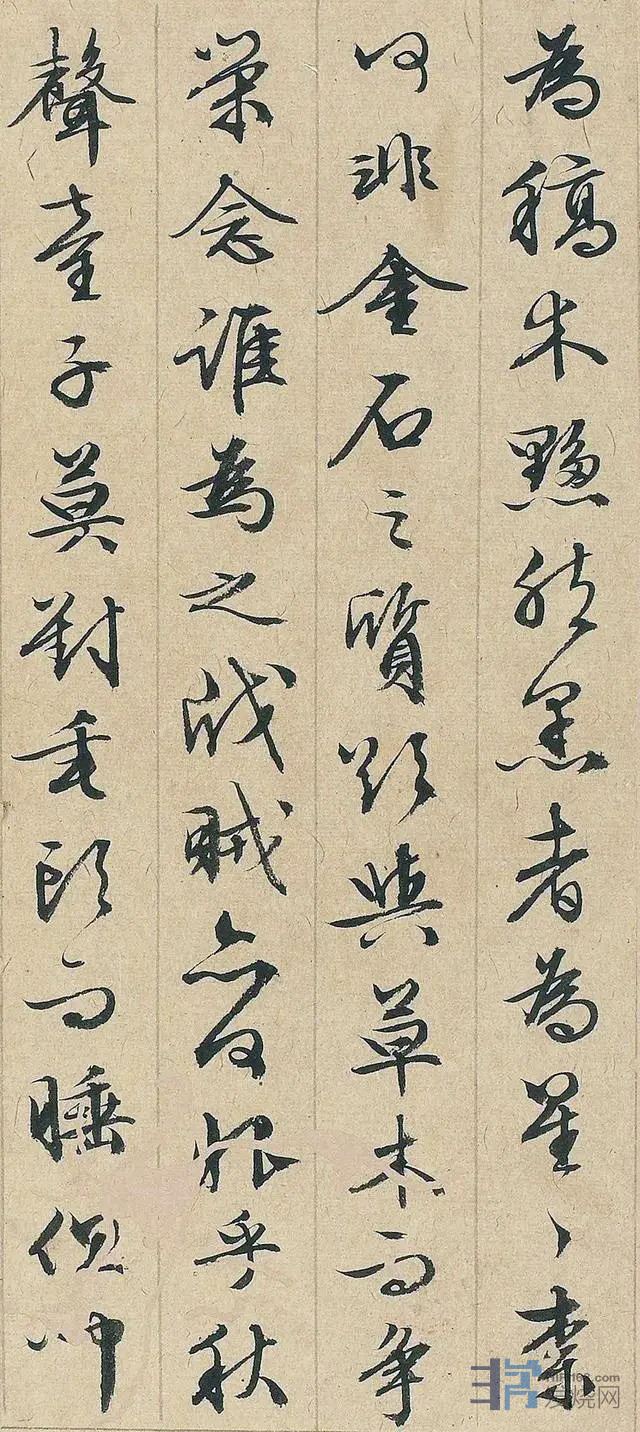 為稿木黟然黑者為星〻奈
何非金石之質欲與草木而爭
榮念誰為之戕賊亦何恨乎秋
聲童子莫對垂頭而睡但聞
发烧网